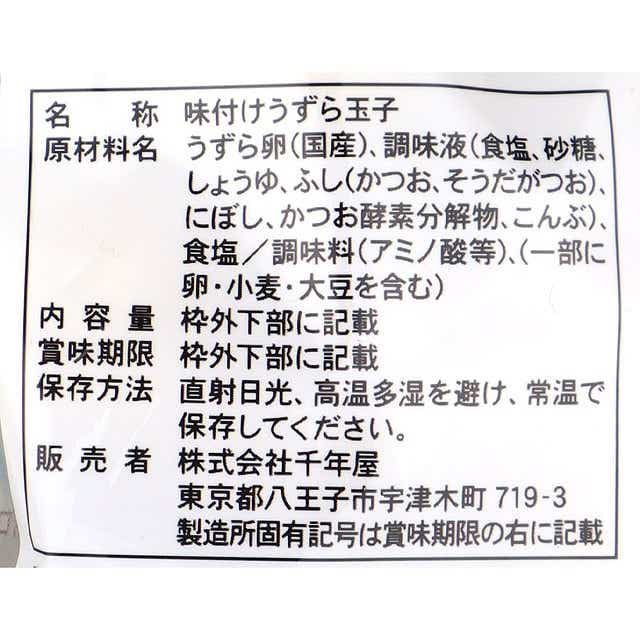 名称 味付けうずら玉子
原材料名 うずら卵(国産)、調味液(食塩、砂糖、
しょうゆ、ふし(かつお、そうだがつお)、
にぼし、かつお酵素分解物、こんぶ)、
食塩/調味料(アミノ酸等)、(一部に
卵・小麦・大豆を含む)
内容量 枠外下部に記載
賞味期限 枠外下部に記載
保存方法 直射日光、高温多湿を避け、常温で
保存してください。
販売者 株式会社千年屋
東京都八王子市宇津木町 719-3
製造所固有記号は賞味期限の右に記載